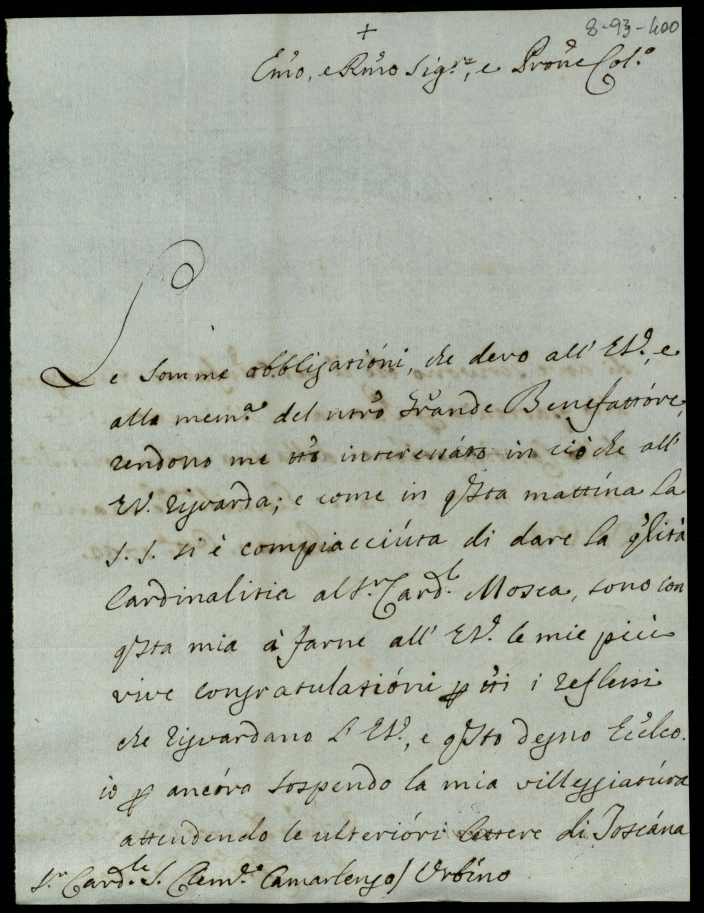 8-93-400
+
Em̃o, e Rm̃o Sig.re, e Pro͠ne Col.o
Le somme obbligazióni, che devo all' EV.a, e
alla mem.a del ntrõ Grande Benefattóre,
rendono me ttõ interessato in ciò che all'
EV. riguarda; e come in qsta mattína la
S. S. si è compiacciúta di dare la qlità
Cardinalizia al Sr. Card.l Mosca, sono con
qsta mia à farne all' EV.a le mie più
vive congratulazióni ꝑ tti i reflessi
che riguardano l' EV.a, e qsto degno Eccleco.
io ꝑ ancóra sospendo la mia villeggiatúra
attendendo le ulterióri lettere di Toscána
Sr. Card.le S. Clem.te Camarlengo / Urbíno